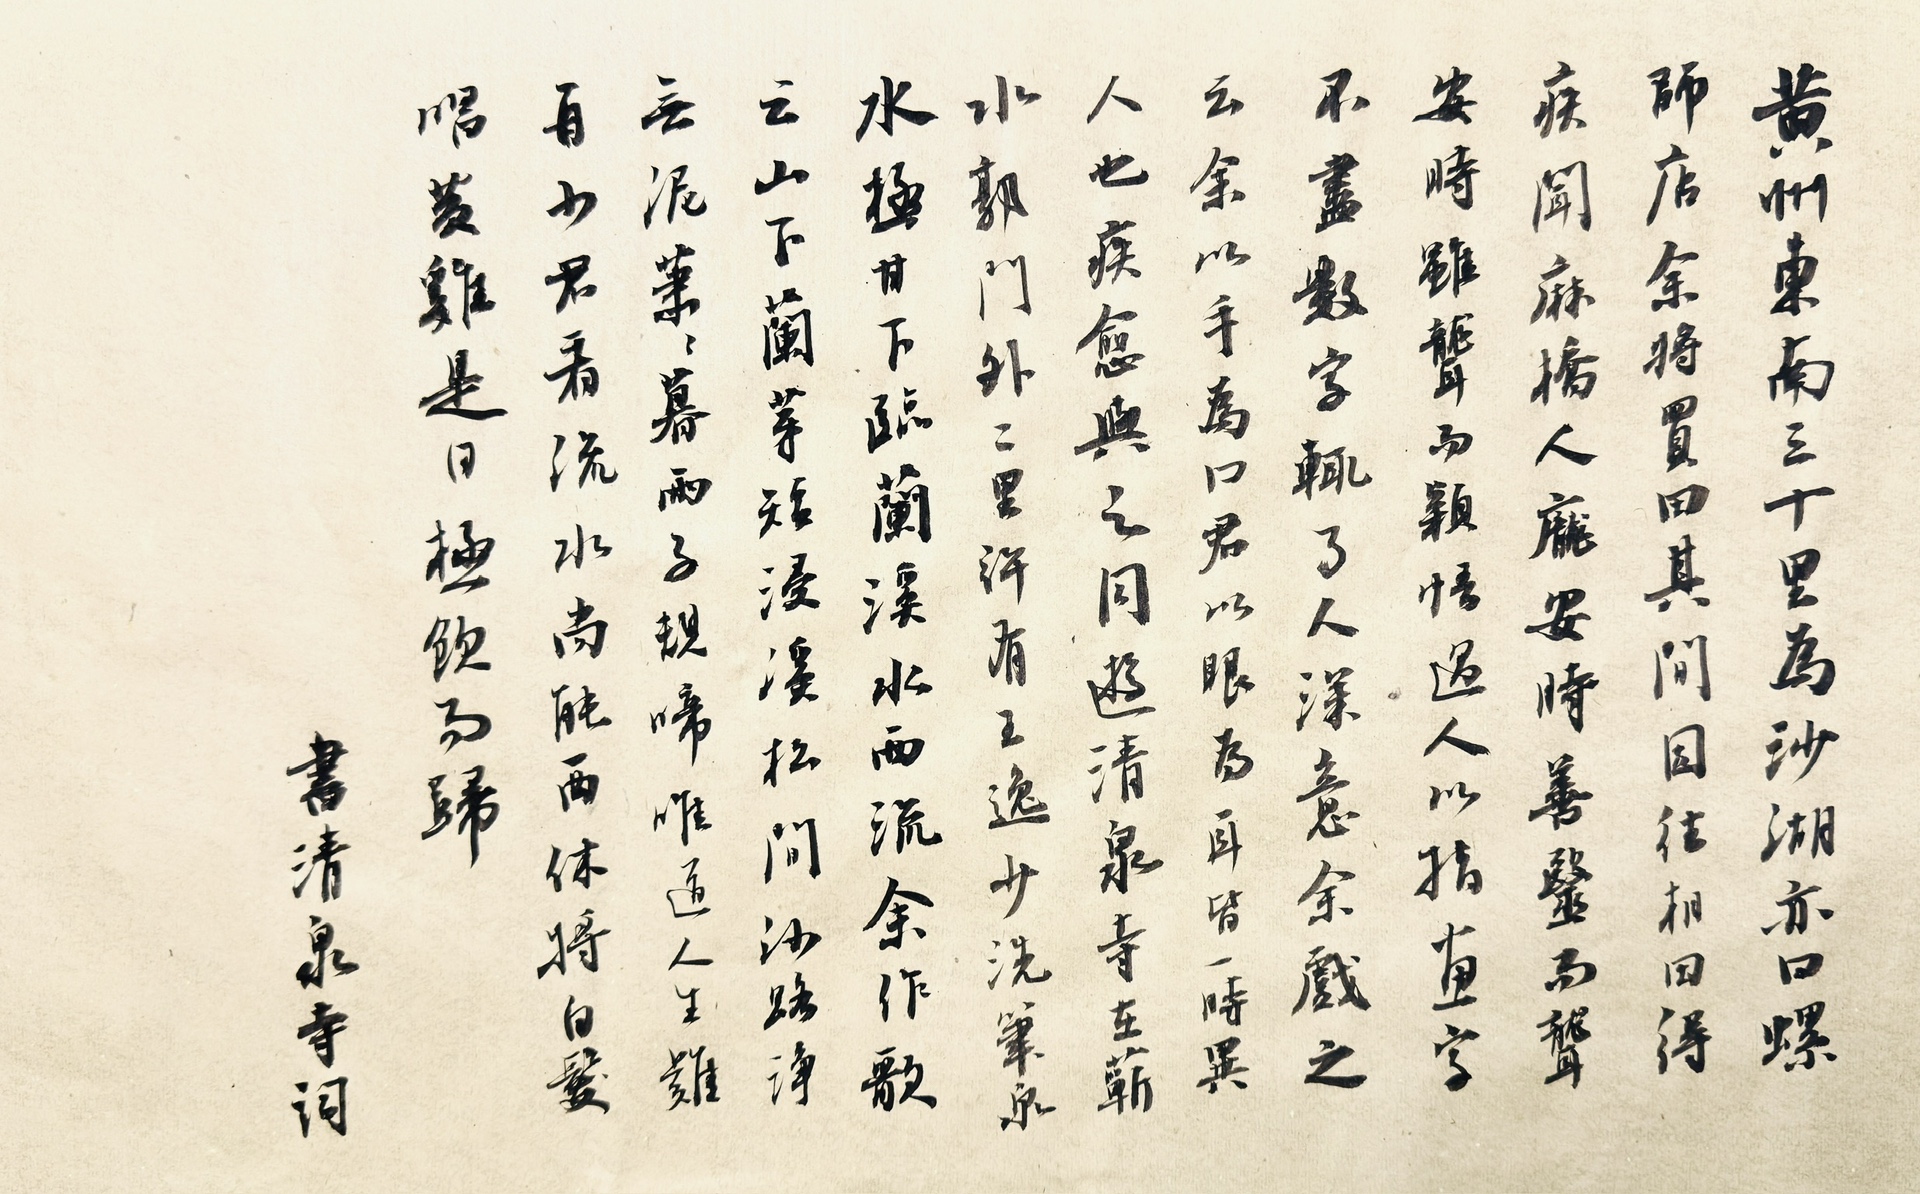 黄州東南三十里為沙湖亦曰螺
師店余將買田其間因往相田得
疾聞麻橋人龐安時善醫而聾
安時雖聾而穎悟過人以指畫字
不盡數字輒了人深意余戲之
云余以手為口君以眼為耳皆一時異
人也疾愈與之同遊清泉寺在蘄
水郭門外二里許有王逸少洗筆泉
水極甘下臨蘭溪水西流余作歌
云山下蘭芽短浸溪松間沙路淨
無泥蕭〻暮雨子規啼唯道人生難
再少君看流水尚能西休將白髮
唱黄雞是日極飲而歸
書清泉寺詞